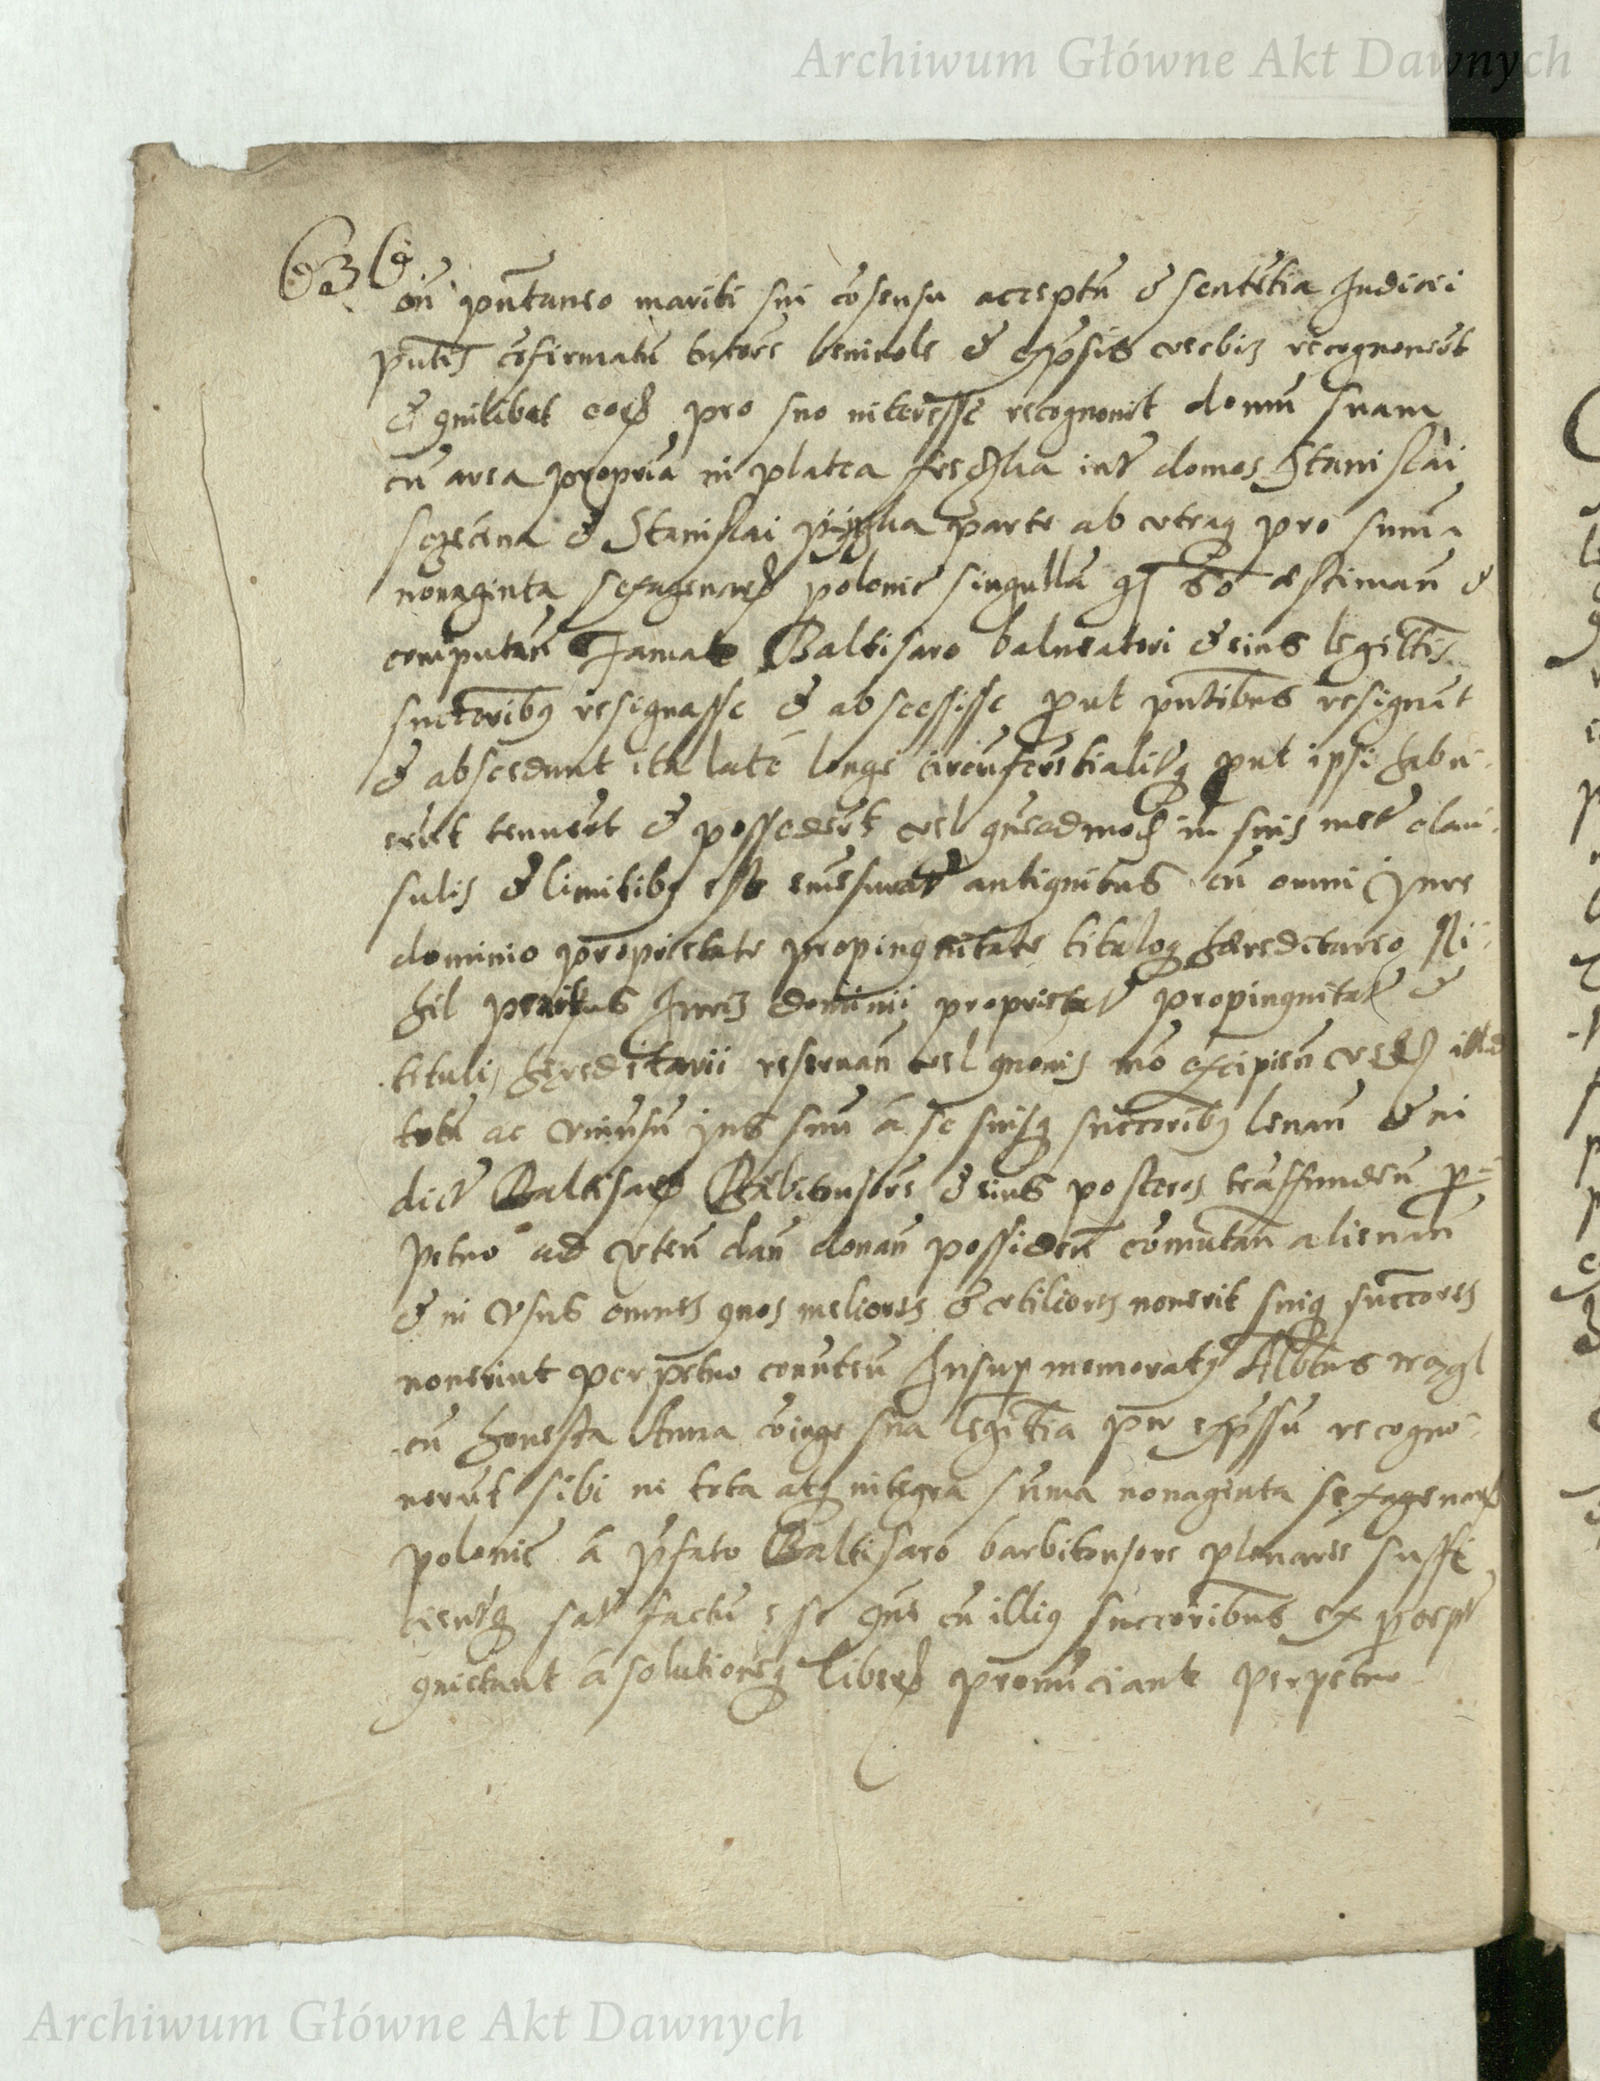 Archiwum Główne Akt Dawnych
636
cū pn̄taneo mariti sui cōsensu acceptū & sentētia Judicii
pn̄tis cōfirmatū tutorē benivole & exp̄sis verbis recognoverūt
& quilibet eoꝝ pro suo interesse recognovit domū suam
cū area propria in platea inter domos Stanislai
& Stanislai parte ab utraq pro suma
nonaginta sexagenarꝝ polonic singullā 60 æstiman̄ &
computan̄ Famato Baltisaro balneatori & eius legittis
succorībus resignasse & abscessisse p̄ut pn̄tibus resignāt
& abscedunt ita late longe circūferētialiterq p̄ut ipsi habu-
erūt tenuerūt & possederūt vel quēadmodū in suis metis clau-
sulis & limitibus est emēsurat antiquitus cū omni jure
dominio proprietate propinquitate tituloq hæreditareo Ni-
hil penitus Juris dominii proprietat propinquitat &
tituli hæreditarii reservan̄ vel quovis mō excipien̄ illud
totū ac univsū jus suū a se suisq succorībus levan̄ & in
dict Baltisarꝝ Barbitonsorē & eius posteros trāsfunden̄ p̄-
petuo ad uten̄ dan̄ donan̄ possiden̄ cōmutan̄ alienan̄
& in usus omnes quos meliores & utiliores noverit suiq succores
noverint perpetuo converten̄ Insup memoratus Albtus
cū honesta Anna cōiuge sua legitīa per exp̄ssū recogno-
verūt sibi in tota atq integra sūma nonaginta sexagenarꝝ
polonic a p̄fato Baltisaro barbitonsore plenarie suffi
cienterq sat factū esse quē cū illius succorībus ex p̄cept
quictant a solutioneq liberꝝ pronūciant perpetuo
Archiwum Główne Akt Dawnych